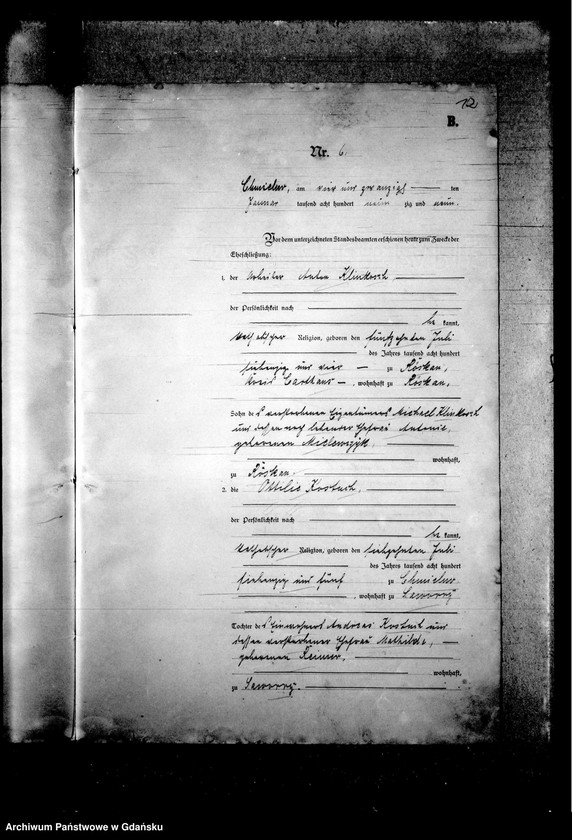 12
B.
Nr. 6.
Chmielno, am vier und zwanzigs ten
Januar tausend acht hundert neun zig und neun.
Vor dem unterzeichneten Standesbeamten erschienen heute zum Zwecke der
Eheschließung:
1. der Arbeiter Anton Klinkosch
der Persönlichkeit nach
be kannt,
katholischer Religion, geboren den fünfzehnten Juli
des Jahres tausend acht hundert
siebenzig und vier zu Röskau,
Kreis Carthaus, wohnhaft zu Röskau,
Sohn des verstorbenen Eigenthümers Michael Klinkosch
und dessen noch lebender Ehefrau Antonie,
geborenen
wohnhaft,
zu Röskau.
2. die Ottilie Kostuch,
der Persönlichkeit nach
be kannt,
katholischer Religion, geboren den siebzehnten Juli
des Jahres tausend acht hundert
siebenzig und fünf zu Chmielno
, wohnhaft zu
Tochter des Einwohners Andreas Kostuch und
dessen verstorbener Ehefrau Mathilde,
geborenen Reimer,
wohnhaft,
zu
Archiwum Państwowe w Gdańsku